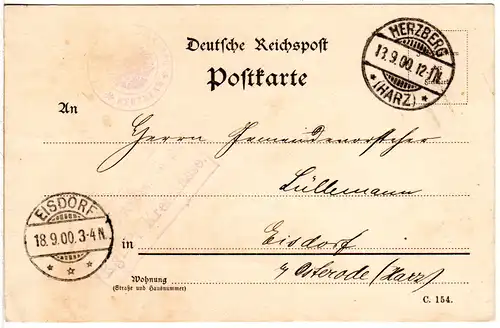 Deutsche Reichspost
Postkarte
HERZBERG
13.9.00.12-1N.
* (HARZ) *
An
Herrn Gemeindevorsteher
Lüllemann
EISDORF
18.9.00.3-4N.
in
Eisdorf
Osterode (Harz)
Wohnung
(Straße und Hausnummer)
C. 154.